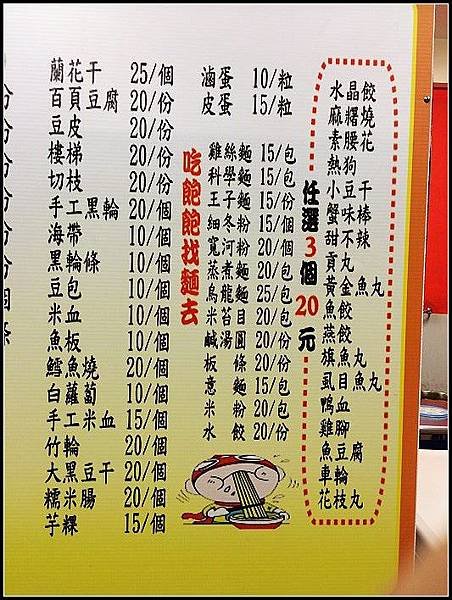 蘭花干 25/個
百頁豆腐 20/份
豆皮 20/份
樓梯 20/份
切枝 20/份
手工黑輪 20/個
海帶 10/個
黑輪條 10/個
豆包 20/個
米血 10/個
魚板 10/個
鱈魚燒 20/個
白蘿蔔 10/個
手工米血 15/個
竹輪 20/個
大黑豆干 20/個
糯米腸 20/個
芋粿 15/個
滷蛋 10/粒
皮蛋 15/粒
吃飽飽找麵去
雞絲麵 15/包
科學麵 15/包
王子麵 15/包
細冬粉 15/個
寬河粉 20/份
蒸煮麵 20/包
烏龍麵 25/包
米苔目 20/包
鹹湯圓 20/份
板條 20/份
意麵 15/包
米粉 20/包
水餃 20/份
任選3個20元
水晶餃
麻糬燒
素腰花
熱狗
小豆干
蟹味棒
甜不辣
貢丸
黃金魚丸
魚餃
燕餃
旗魚丸
虱目魚丸
鴨血
雞腳
魚豆腐
車輪
花枝丸